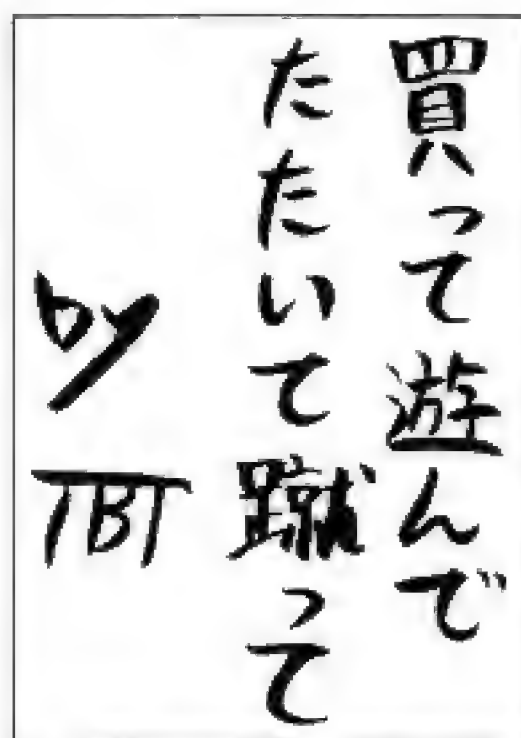 買って遊んで
たたいて蹴って
by
TBT